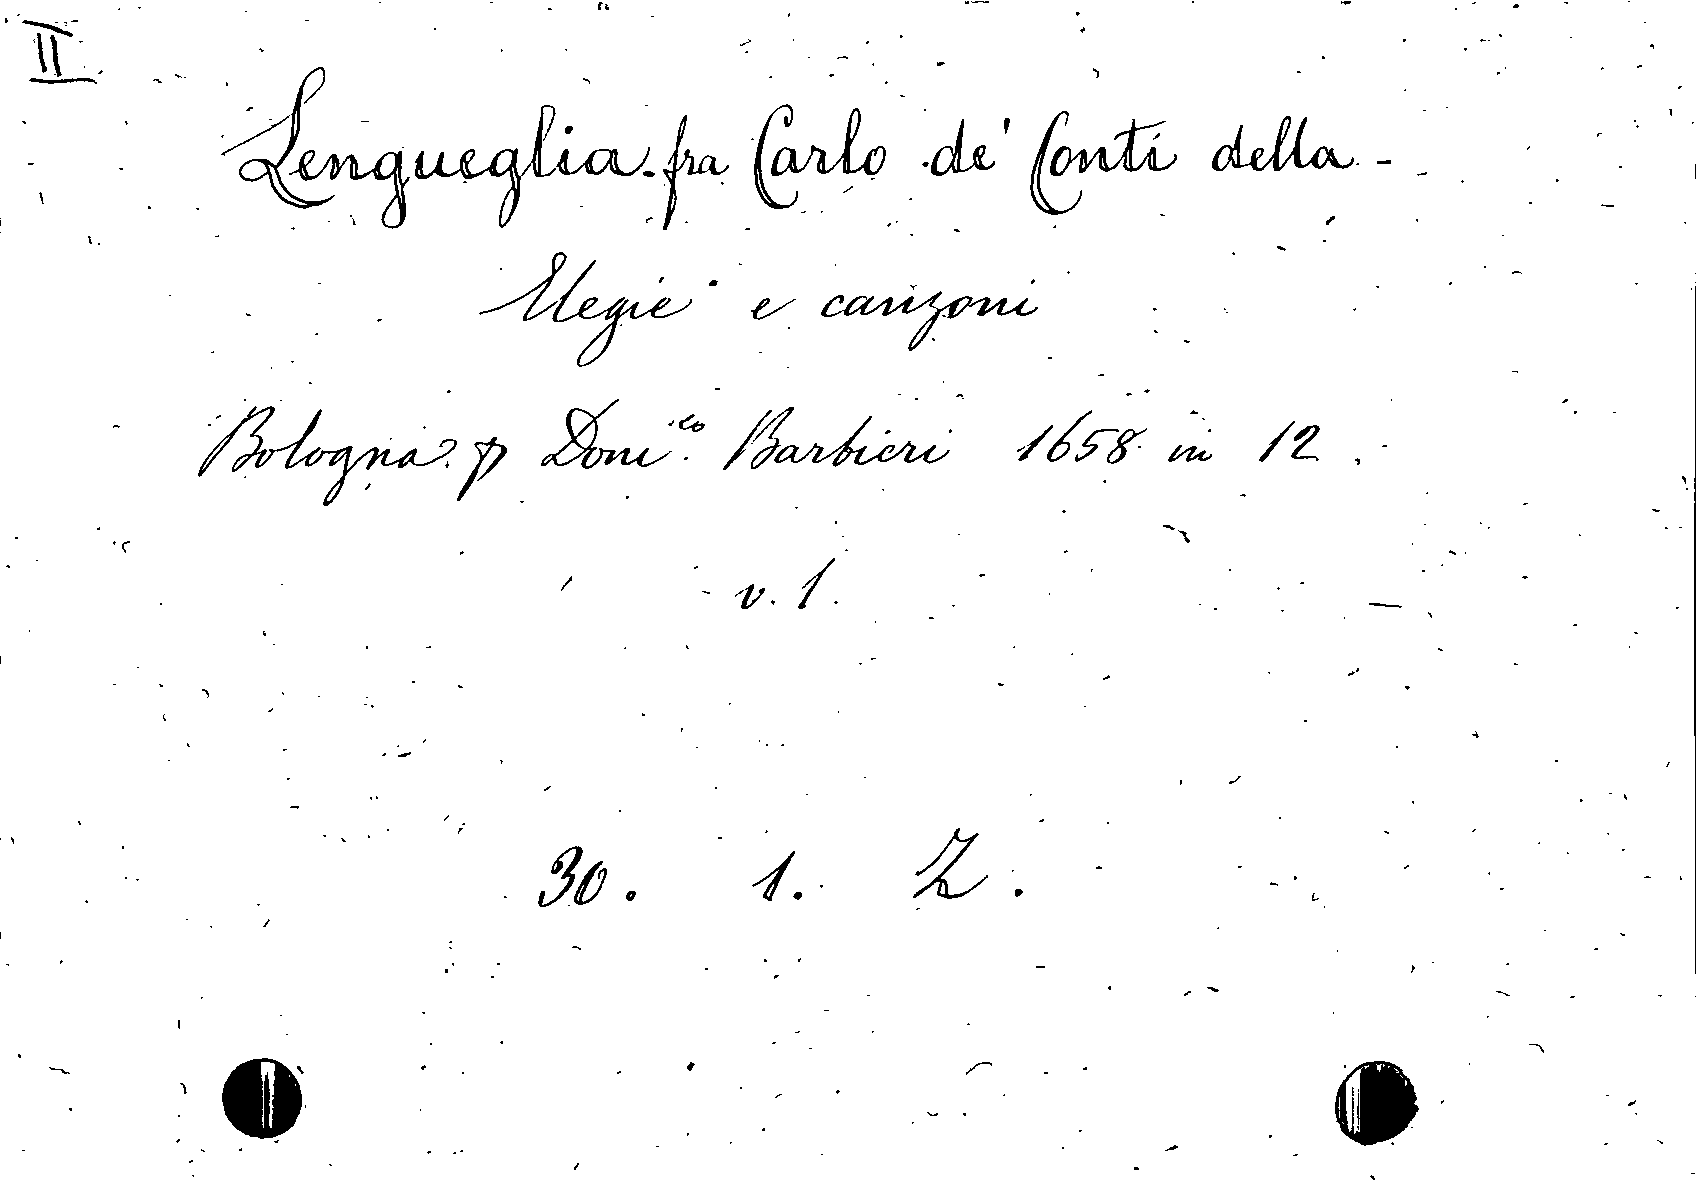 II
Lengueglia fra Carlo de' Conti della -
Elegie e canzoni
Bologna p Domco Barbieri 1658 in 12.
v. 1.
30. 1. Z.